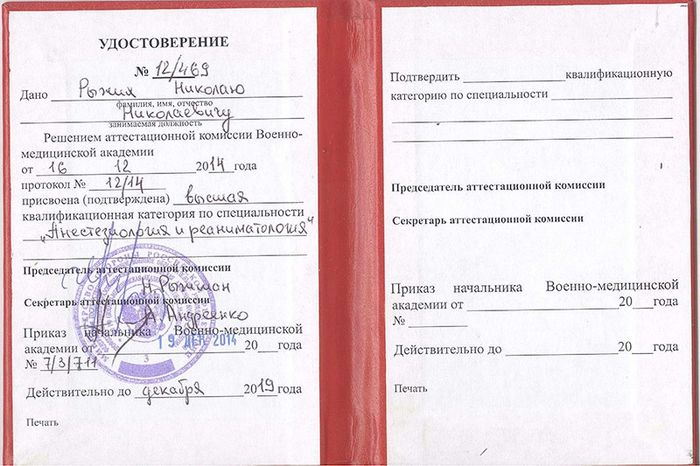 УДОСТОВЕРЕНИЕ
№ 12/469
Дано Рыжих Николаю
фамилия, имя, отчество
Николаевичу
занимаемая должность
Решением аттестационной комиссии Военно-
медицинской академии
от 16 12 2014 года
протокол № 12/14
присвоена (подтверждена) высшая
квалификационная категория по специальности
„Анестезиология и реаниматология"
Председатель аттестационной комиссии
Секретарь аттестационной комиссии
А. Андреенко
Приказ начальника Военно-медицинской
19 ДЕК 2014
академии от 20 года
№ 7/3/711
Действительно до декабря 2019 года
Печать
Подтвердить квалификационную
категорию по специальности
Председатель аттестационной комиссии
Секретарь аттестационной комиссии
Приказ начальника Военно-медицинской
академии от 20 года
№
Действительно до 20 года
Печать